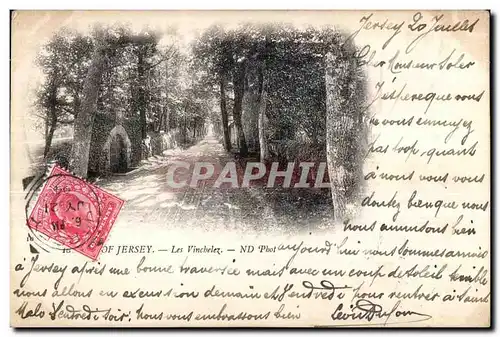 Jersey 20 Juillet
Cher Monsieur Soler
J'espère que vous
vous ennuyez
pas trop, quant
à nous vous vous
doutez bien que nous
nous amusons bien
CARPEDIEM
OF JERSEY. — Les Vinchelez. — ND Phot
aujourd'hui nous sommes arrivés
à Jersey après une bonne traversée mais avec un coup de soleil terrible
nous allons en excursion demain et Jeudi pour rentrer à Saint
Malo Vendredi soir. Nous vous embrassons bien